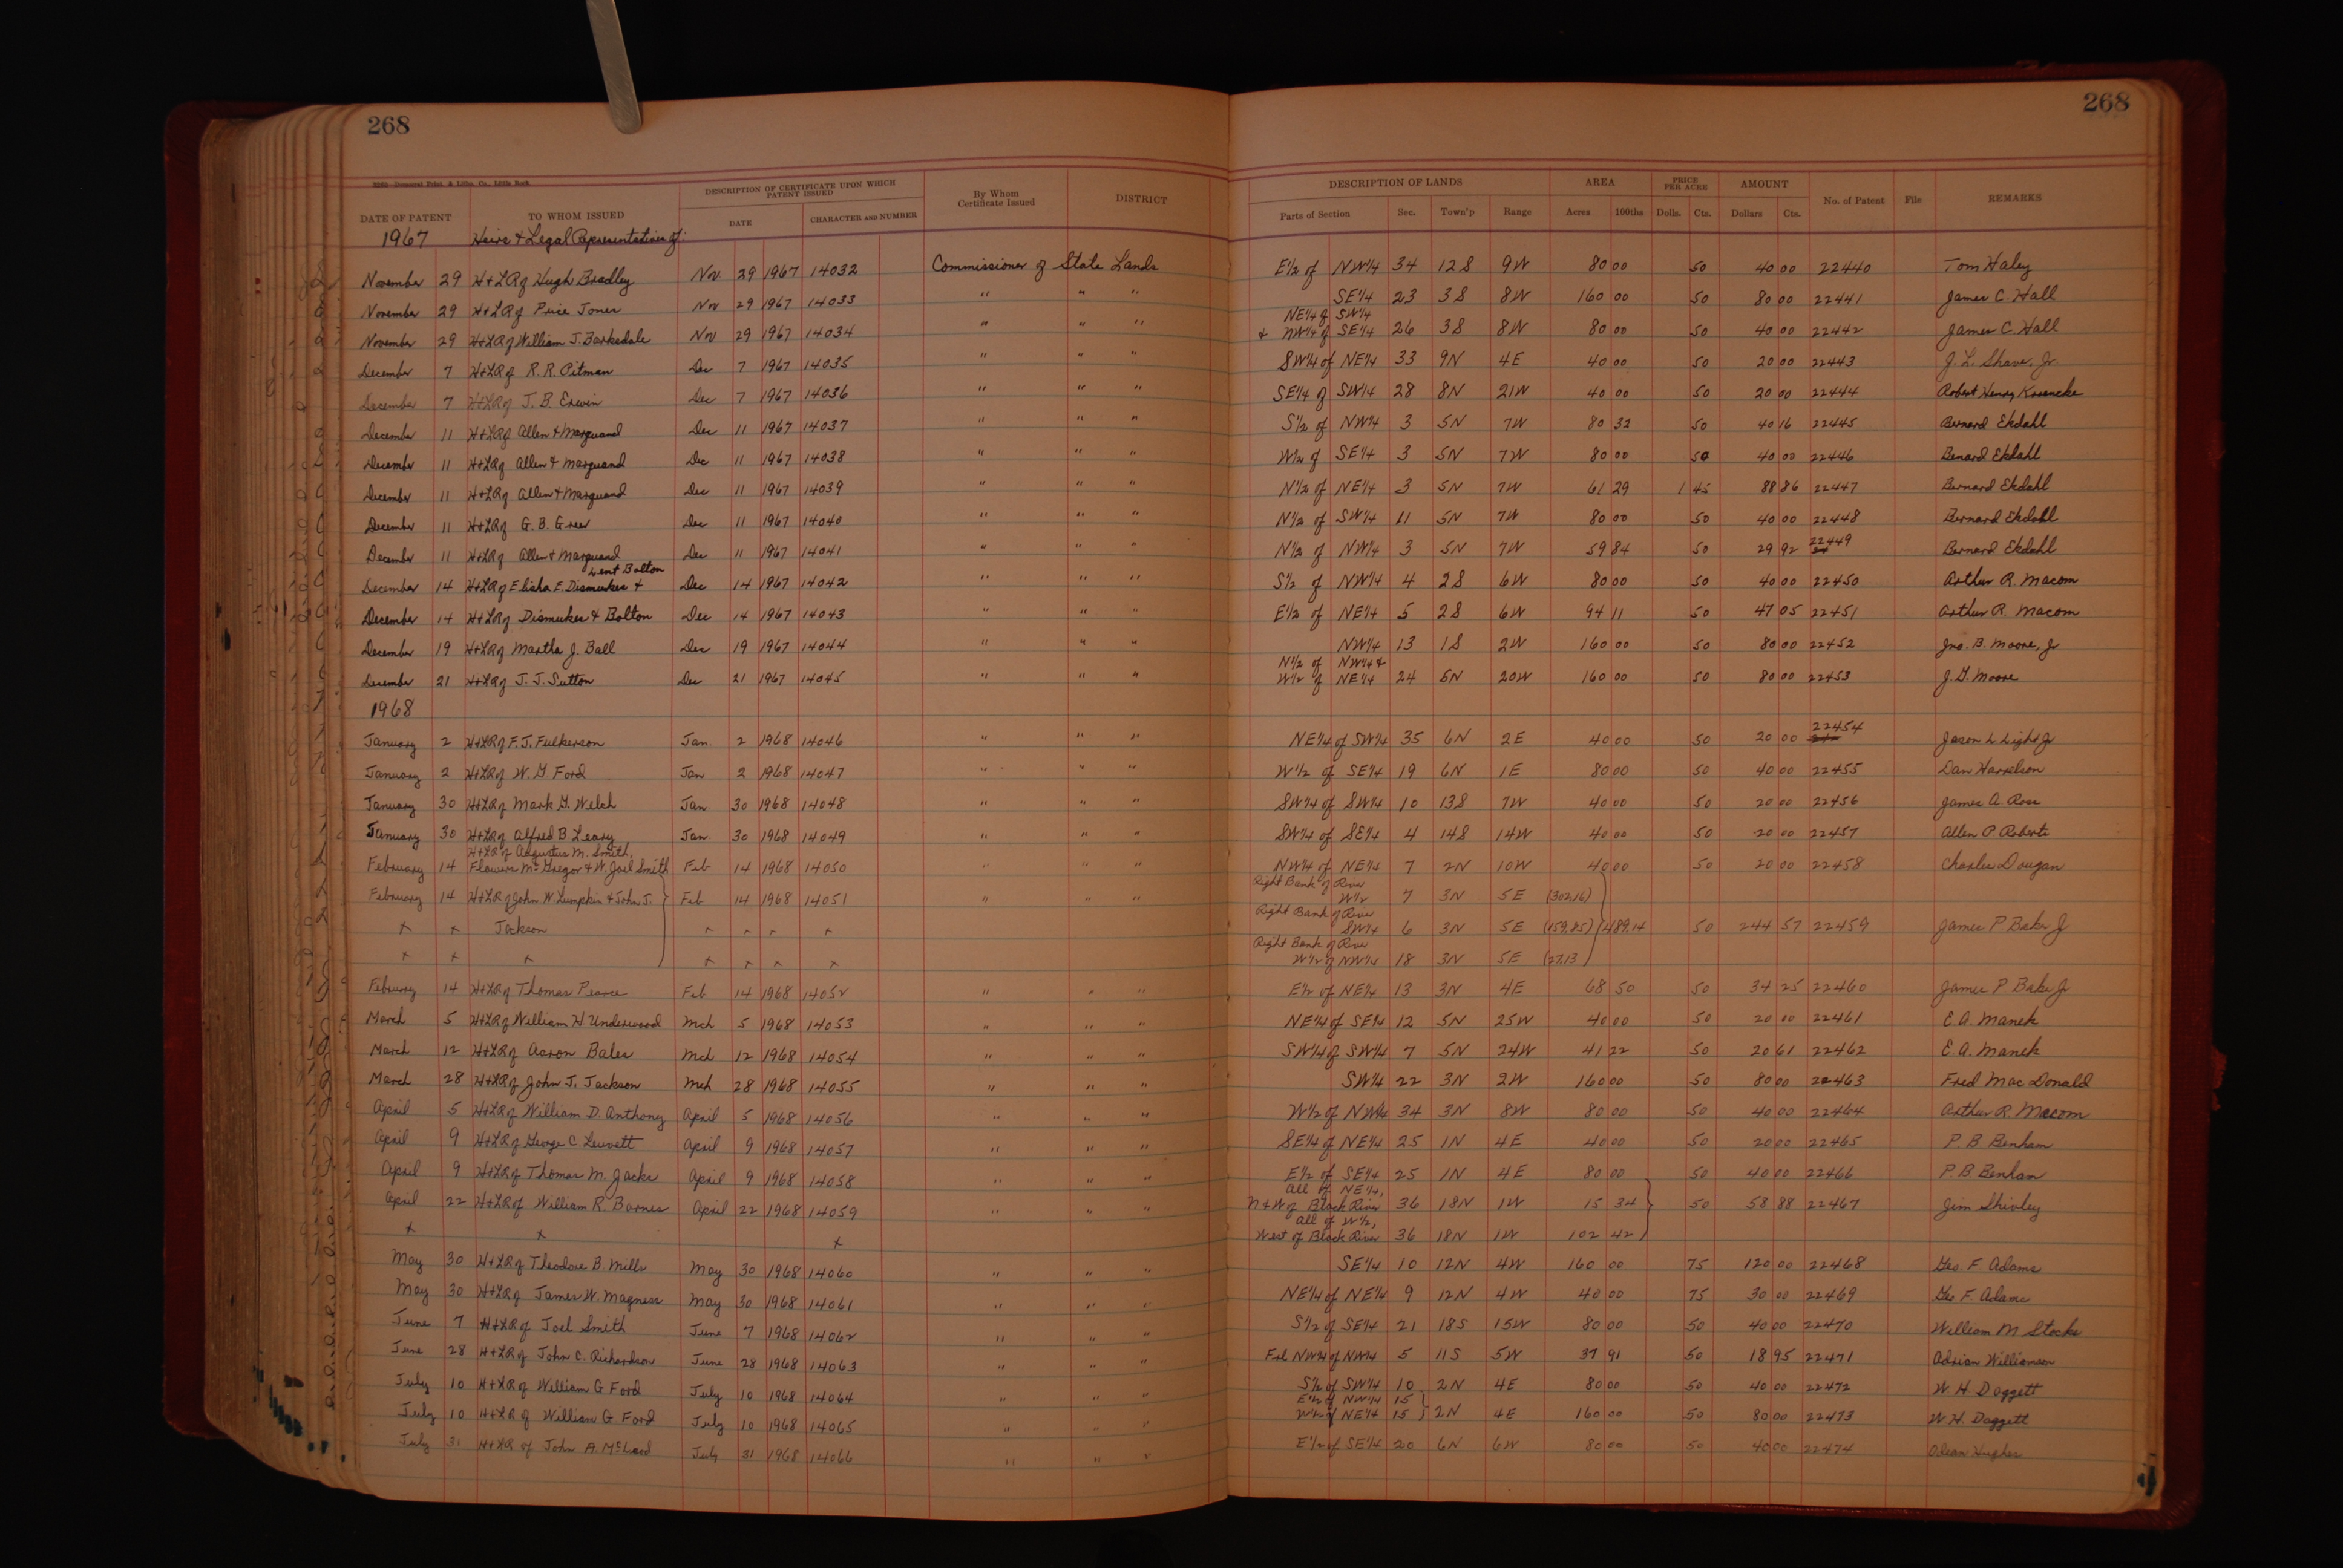 268
268
2260—Democrat Print. & Litho. Co., Little Rock
DATE OF PATENT TO WHOM ISSUED DESCRIPTION OF CERTIFICATE UPON WHICH PATENT ISSUED DATE CHARACTER AND NUMBER By Whom Certificate Issued DISTRICT
DESCRIPTION OF LANDS Parts of Section Sec. Town'p Range AREA Acres 100ths PRICE PER ACRE Dolls. Cts. AMOUNT Dollars Cts. No. of Patent File REMARKS
1967 Heirs & Legal Representatives of:
November 29 H+LR of Hugh Bradley Nov 29 1967 14032 Commissioner of State Lands E½ of NW¼ 34 12S 9W 80 00 50 40 00 22440 Tom Haley
November 29 H+LR of Price Jones Nov 29 1967 14033 " " " SE¼ 23 3S 8W 160 00 50 80 00 22441 James C. Hall
NE¼ of SW¼
November 29 H+LR of William J. Barksdale Nov 29 1967 14034 " " " & NW¼ of SE¼ 26 3S 8W 80 00 50 40 00 22442 James C. Hall
December 7 H+LR of R. R. Pitman Dec 7 1967 14035 " " " SW¼ of NE¼ 33 9N 4E 40 00 50 20 00 22443 J. L. Shaver, Jr
December 7 H+LR of J. B. Erwin Dec 7 1967 14036 " " " SE¼ of SW¼ 28 8N 21W 40 00 50 20 00 22444 Robert Henry Kroencke
December 11 H+LR of Allen & Marquand Dec 11 1967 14037 " " " S½ of NW¼ 3 5N 7W 80 32 50 40 16 22445 Bernard Ekdahl
December 11 H+LR of Allen & Marquand Dec 11 1967 14038 " " " W½ of SE¼ 3 5N 7W 80 00 50 40 00 22446 Benard Ekdahl
December 11 H+LR of Allen & Marquand Dec 11 1967 14039 " " " N½ of NE¼ 3 5N 7W 61 29 1 45 88 86 22447 Bernard Ekdahl
December 11 H+LR of G. B. Greer Dec 11 1967 14040 " " " N½ of SW¼ 11 5N 7W 80 00 50 40 00 22448 Bernard Ekdahl
December 11 H+LR of Allen & Marquand Dec 11 1967 14041 " " " N½ of NW¼ 3 5N 7W 59 84 50 29 92 22449 Bernard Ekdahl
Lent Bolton
December 14 H+LR of Elisha E. Dismukes & Dec 14 1967 14042 " " " S½ of NW¼ 4 2S 6W 80 00 50 40 00 22450 Arthur R. Macom
December 14 H+LR of Dismukes & Bolton Dec 14 1967 14043 " " " E½ of NE¼ 5 2S 6W 94 11 50 47 05 22451 Arthur R. Macom
December 19 H+LR of Martha J. Ball Dec 19 1967 14044 " " " NW¼ 13 1S 2W 160 00 50 80 00 22452 Jno. B. Moore, Jr
N½ of NW¼ &
December 21 H+LR of J. J. Sutton Dec 21 1967 14045 " " " W½ of NE¼ 24 5N 20W 160 00 50 80 00 22453 J. G. Moore
1968
January 2 H+LR of F. J. Fulkerson Jan. 2 1968 14046 " " " NE¼ of SW¼ 35 6N 2E 40 00 50 20 00 22454 Jason L Light Jr
January 2 H+LR of W. G Ford Jan 2 1968 14047 " " " W½ of SE¼ 19 6N 1E 80 00 50 40 00 22455 Dan Harrelson
January 30 H+LR of Mark G. Welch Jan 30 1968 14048 " " " SW¼ of SW¼ 10 13S 7W 40 00 50 20 00 22456 James A. Ross
January 30 H+LR of Alfred B Leary Jan. 30 1968 14049 " " " SW¼ of SE¼ 4 14S 14W 40 00 50 20 00 22457 Allen P Roberts
H+LR of Augustus M. Smith,
February 14 Flowers McGregor & W. Joel Smith Feb 14 1968 14050 " " " NW¼ of NE¼ 7 2N 10W 40 00 50 20 00 22458 Charles Dougan
Right Bank of River
February 14 H+LR of John W Lumpkin & John J. Feb 14 1968 14051 " " " W½ 7 3N 5E (302.16)
Right Bank of River
x x Jackson x x x x SW¼ 6 3N 5E (159.85) 489.14 50 244 57 22459 James P Baker Jr
Right Bank of River
x x x x x x x W½ of NW¼ 18 3N 5E (27.13)
Februrey 14 H+LR of Thomas Pearce Feb 14 1968 14052 " " " E½ of NE¼ 13 3N 4E 68 50 50 34 25 22460 James P Baker Jr
March 5 H+LR of William H Underwood Mch 5 1968 14053 " " " NE¼ of SE¼ 12 5N 25W 40 00 50 20 00 22461 E. A. Manek
March 12 H+LR of Aaron Bales Mch 12 1968 14054 " " " SW¼ of SW¼ 7 5N 24W 41 22 50 20 61 22462 E. A. Manek
March 28 H+LR of John J. Jackson Mch 28 1968 14055 " " " SW¼ 22 3N 2W 160 00 50 80 00 22463 Fred MacDonald
April 5 H+LR of William D. Anthony April 5 1968 14056 " " " W½ of NW¼ 34 3N 8W 80 00 50 40 00 22464 Arthur R. Macom
April 9 H+LR of George C. Leuvett April 9 1968 14057 " " " SE¼ of NE¼ 25 1N 4E 40 00 50 20 00 22465 P. B Benham
April 9 H+LR of Thomas M. Jacks April 9 1968 14058 " " " E½ of SE¼ 25 1N 4E 80 00 50 40 00 22466 P. B. Benham
All of NE¼,
April 22 H+LR of William R. Barnes April 22 1968 14059 " " " N & W of Black River 36 18N 1W 15 34 50 58 88 22467 Jim Shivley
All of W½,
x x x West of Black River 36 18N 1W 102 42
May 30 H+LR of Theodore B. Mills May 30 1968 14060 " " " SE¼ 10 12N 4W 160 00 75 120 00 22468 Geo. F Adams
May 30 H+LR of James W. Magness May 30 1968 14061 " " " NE¼ of NE¼ 9 12N 4W 40 00 75 30 00 22469 Geo F. Adams
June 7 H+LR of Joel Smith June 7 1968 14062 " " " S½ of SE¼ 21 18S 15W 80 00 50 40 00 22470 William M Stocks
June 28 H+LR of John C. Richardson June 28 1968 14063 " " " Frl NW¼ of NW¼ 5 11S 5W 37 91 50 18 95 22471 Adrian Williamson
July 10 H+LR of William G Ford July 10 1968 14064 " " " S½ of SW¼ 10 2N 4E 80 00 50 40 00 22472 W. H. Daggett
E½ of NW¼ 15
July 10 H+LR of William G. Ford July 10 1968 14065 " " " W½ of NE¼ 15 2N 4E 160 00 50 80 00 22473 W H. Daggett
July 31 H+LR of John A. McLeod July 31 1968 14066 " " " E½ of SE¼ 20 6N 6W 80 00 50 40 00 22474 Odean Hughes